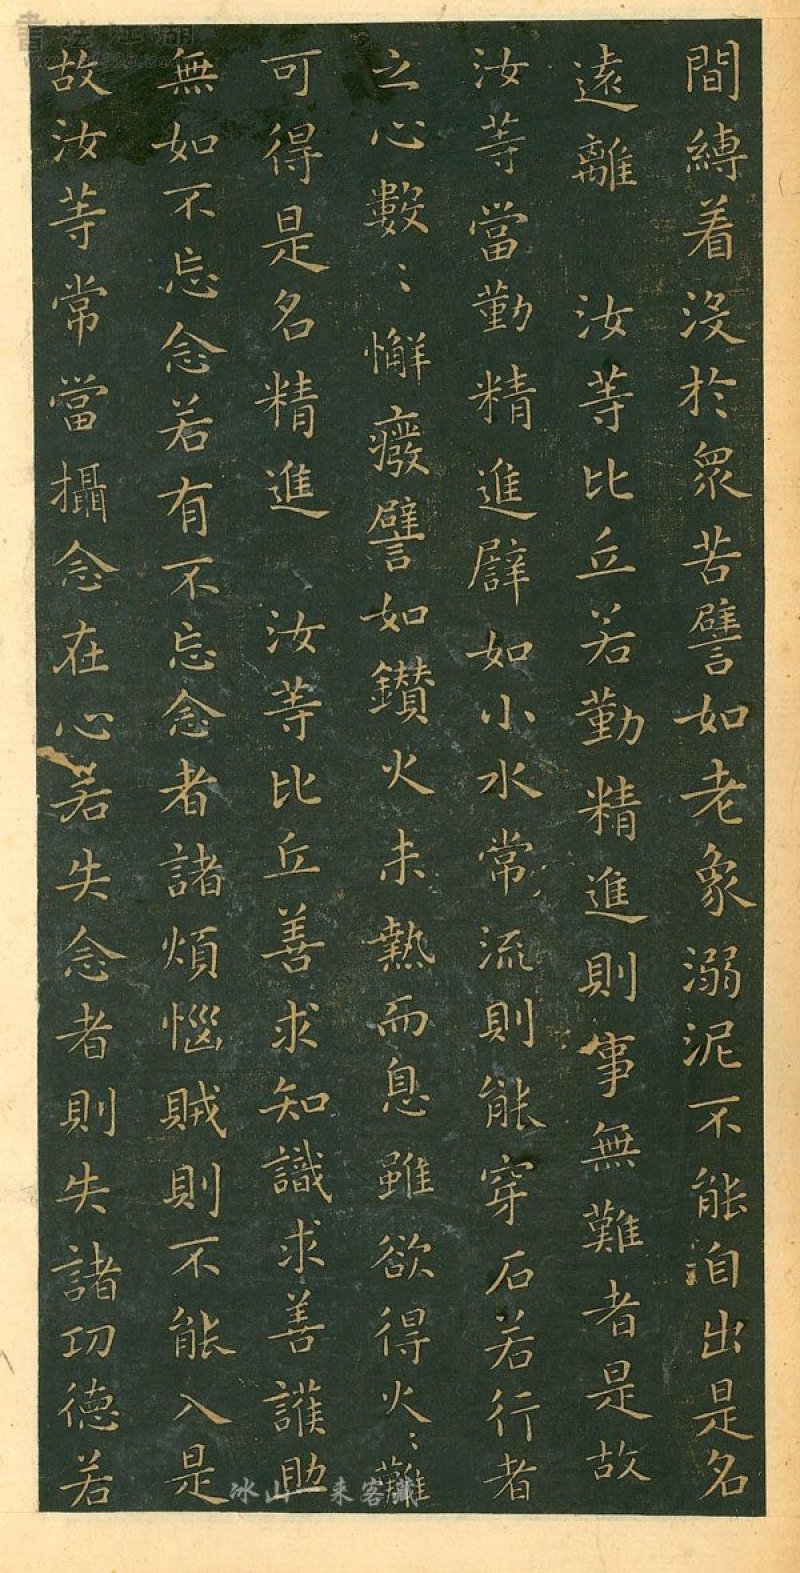 間縛着没於眾苦譬如老象溺泥不能自出是名
遠離 汝等比丘若勤精進則事無難者是故
汝等當勤精進譬如小水常流則能穿石若行者
之心數〻懈癈譬如鑽火未熱而息雖欲得火〻難
可得是名精進 汝等比丘善求知識求善護助
無如不忘念若有不忘念者諸煩惱賊則不能入是
故汝等常當攝念在心若失念者則失諸功德若
書法江湖
冰山一来客藏